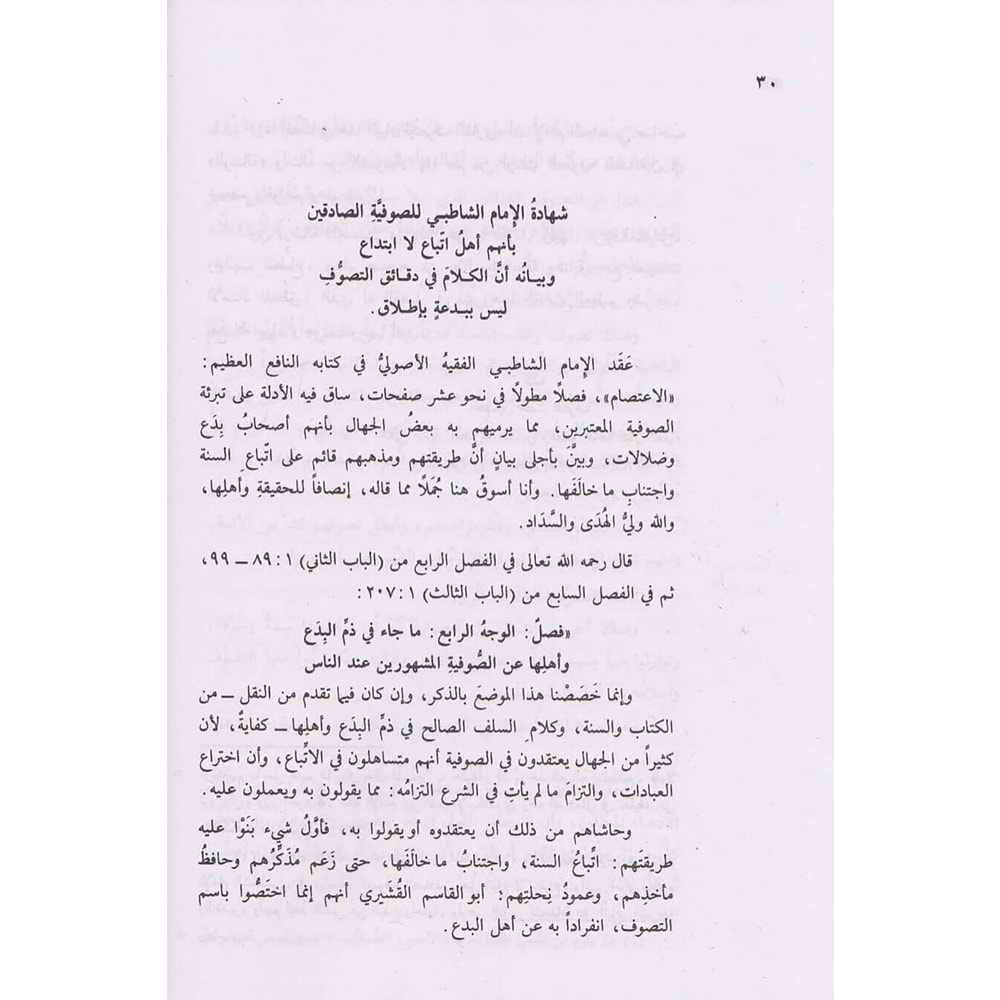 ٣٠
شهادةُ الإمام الشاطبـي للصوفيَّةِ الصادقين
بأنهم أهلُ اتّباع لا ابتداع
وبيـانُه أنَّ الكـلامَ في دقـائق التصوُّفِ
ليس ببدعةٍ بإطلاق.
عَقَد الإمام الشاطبـي الفقيهُ الأصوليُّ في كتابه النافع العظيم:
«الاعتصام»، فصلًا مطولًا في نحو عشر صفحات، ساق فيه الأدلة على تبرئة
الصوفية المعتبرين، مما يرميهم به بعضُ الجهال بأنهم أصحابُ بِدَع
وضلالات، وبيَّنَ بأجلى بيانٍ أنَّ طريقتهم ومذهبهم قائم على اتّباعِ السنة
واجتنابِ ما خالَفَها. وأنا أسوقُ هنا جُمَلًا مما قاله، إنصافاً للحقيقةِ وأهلِها،
والله وليُّ الهُدَى والسَّدَاد.
قال رحمه الله تعالى في الفصل الرابع من (الباب الثاني) ١ : ٨٩ ــ ٩٩،
ثم في الفصل السابع من (الباب الثالث) ١ : ٢٠٧ :
«فصلٌ: الوجهُ الرابع: ما جاء في ذمِّ البِدَع
وأهلِها عن الصُّوفيةِ المشهورين عند الناس
وإنما خَصَصْنا هذا الموضعَ بالذكر، وإن كان فيما تقدم من النقل ــ من
الكتاب والسنة، وكلامِ السلف الصالح في ذمِّ البِدَع وأهلِها ــ كفايةٌ، لأن
كثيراً من الجهال يعتقدون في الصوفية أنهم متساهلون في الاتِّباع، وأن اختراع
العبادات، والتزامَ ما لم يأتِ في الشرع التزامُه: مما يقولون به ويعملون عليه.
وحاشاهم من ذلك أن يعتقدوه أو يقولوا به، فأوَّلُ شيء بَنَوْا عليه
طريقتَهم: اتِّباعُ السنة، واجتنابُ ما خالَفَها، حتى زَعَم مُذَكِّرُهم وحافظُ
مأخذِهم، وعمودُ نِحلتِهم: أبو القاسم القُشَيري أنهم إنما اختَصُّوا باسم
التصوف، انفراداً به عن أهل البدع.